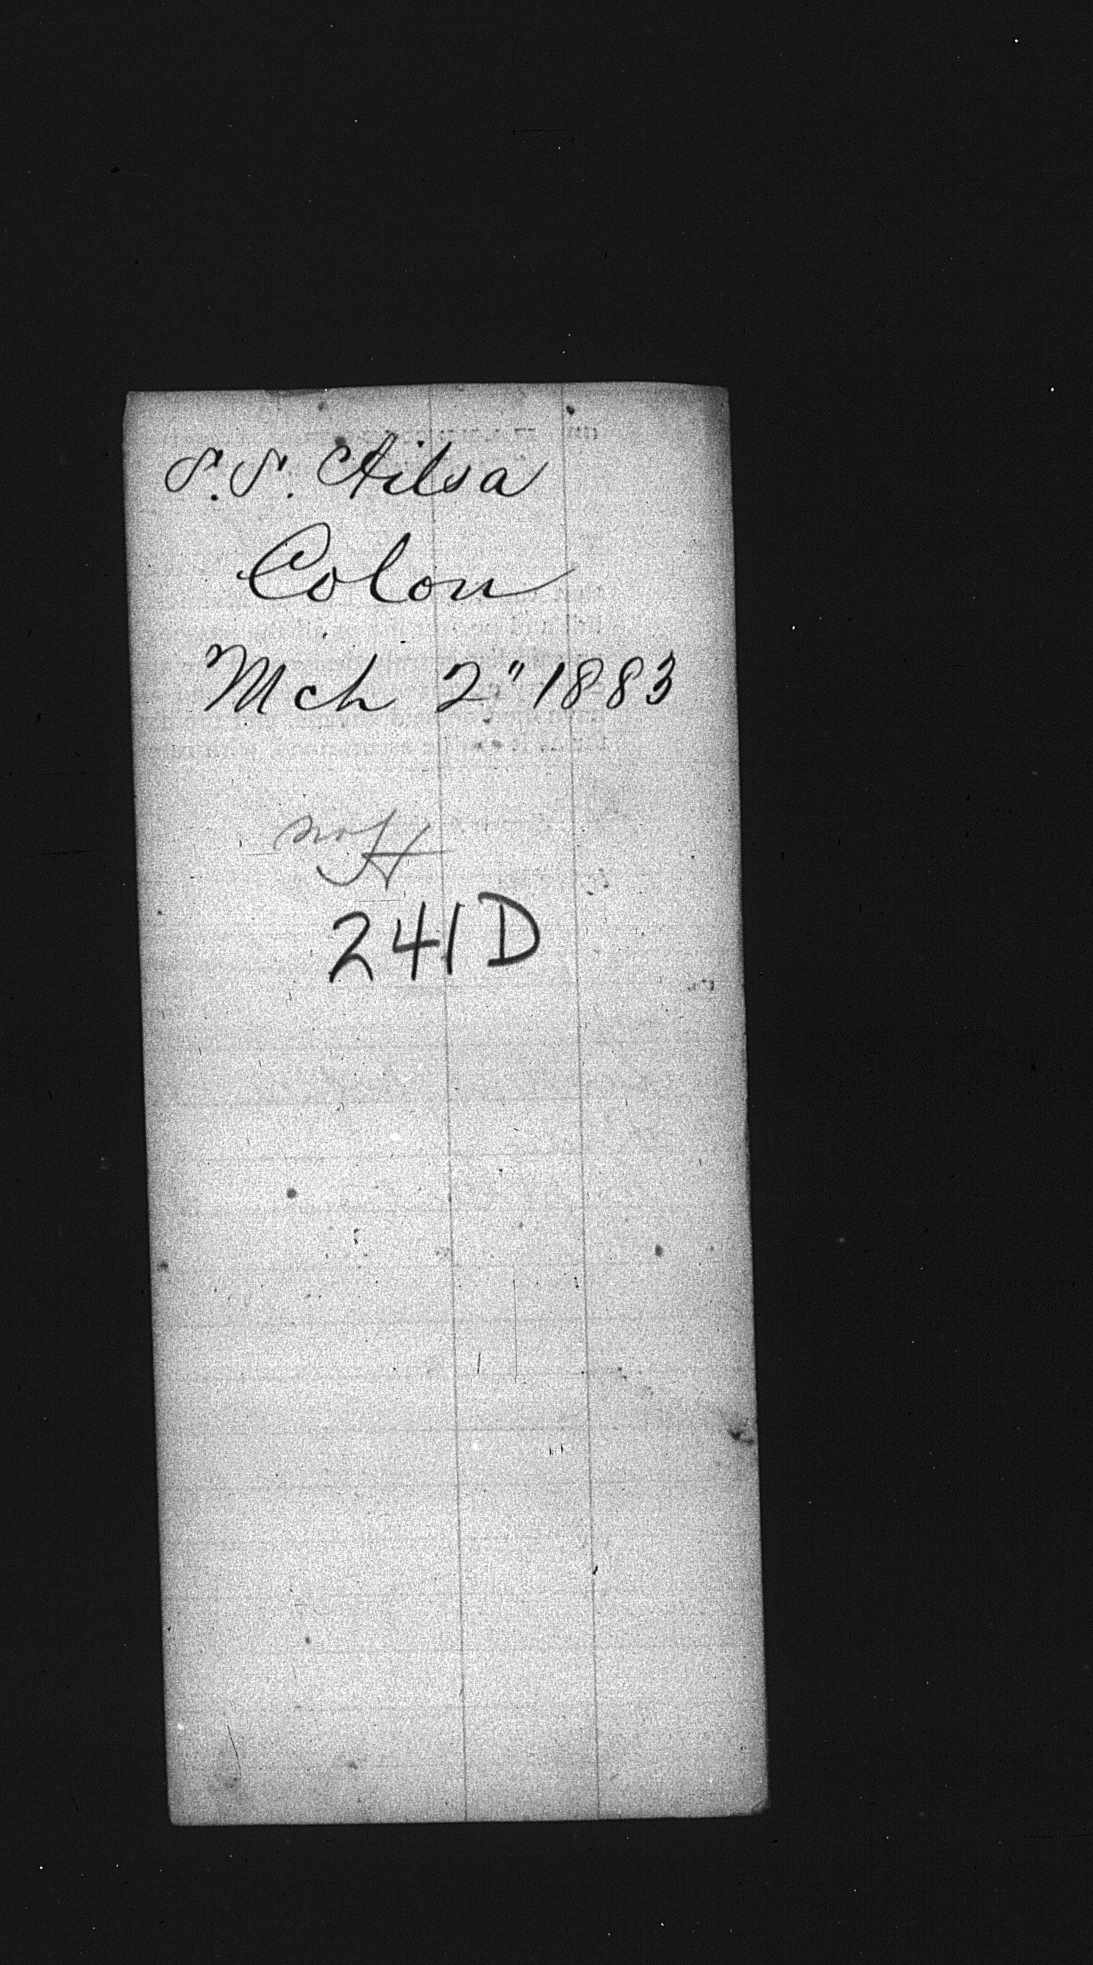 S.S. Ailsa
Colon
Mch 2" 1883
241D